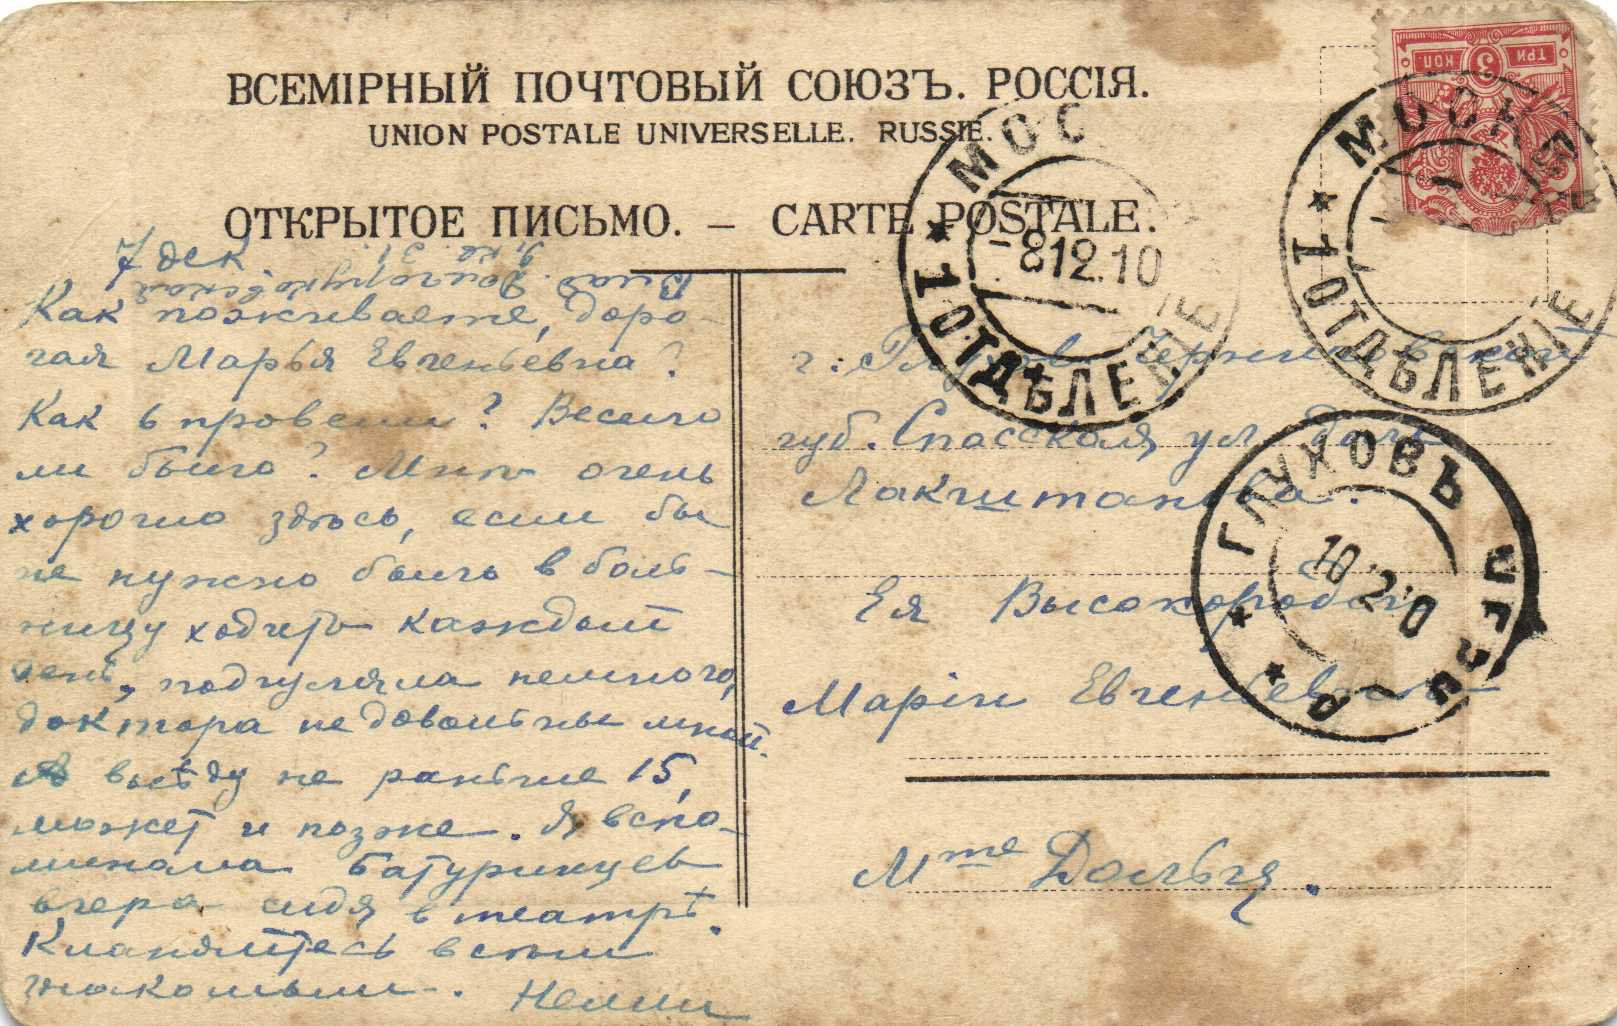 ВСЕМІРНЫЙ ПОЧТОВЫЙ СОЮЗЪ. РОССІЯ.
UNION POSTALE UNIVERSELLE. RUSSIE.
ОТКРЫТОЕ ПИСЬМО. — CARTE POSTALE.
ТРИ 3 КОП
МОСКВА
* 1 ОТДѢЛЕНІЕ
МОС
* 1 ОТДѢЛЕНІЕ
-812.10
ГЛУХОВЪ ЧЕРН
7 дек
Как поживаете, доро-
гая Марья Евгеньевна?
Как провели? Весело
ли было? Мнѣ очень
хорошо здѣсь, если бы
не нужно было в боль-
ницу ходить каждый
день, подгуляла немного,
доктора недовольны мной.
Я выѣду не раньше 15,
может и позже. Я вспо-
минала Батуринцев
вчера сидя в театрѣ.
Кланяйтесь всѣм
знакомым. Нелли
г. Глухов Черниговской
губ. Спасская ул
Ея Высокородію
Маріи Евгеньевнѣ
Mme Дольгя.